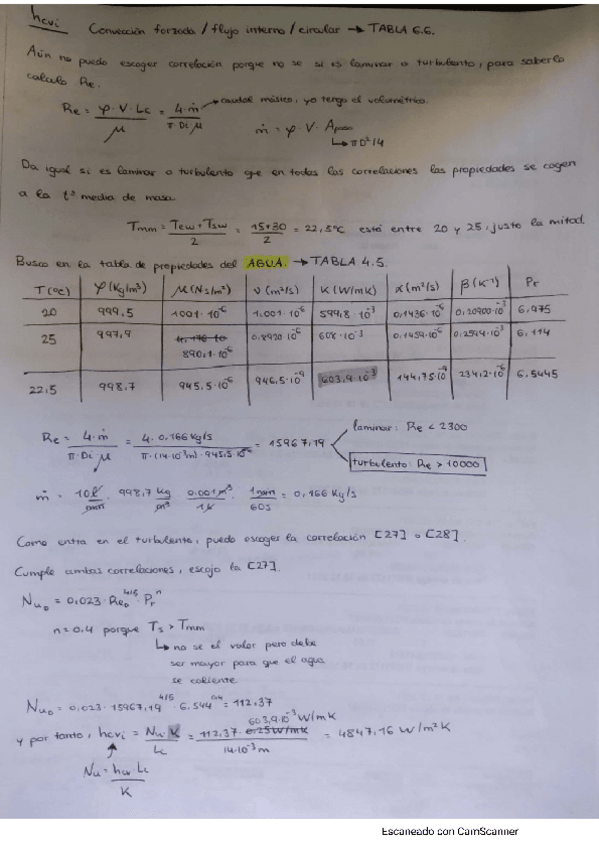 hcvi Convección forzada / flujo interno / circular → TABLA 6.6.
Aún no puedo escoger correlación porque no se si es laminar o turbulento, para saberlo
calculo Re.
Re = φ · V · Lc / μ = 4 · ṁ / π · Di · μ → caudal másico, yo tengo el volumétrico.
ṁ = φ · V · Apaso
↳ πD²/4
Da igual si es laminar o turbulento que en todas las correlaciones las propiedades se cogen
a la tª media de masa.
Tmm = Tew + Tsw / 2 = 15+30 / 2 = 22,5ºC está entre 20 y 25, justo la mitad.
Busco en la tabla de propiedades del AGUA. → TABLA 4.5.
T(ºC) φ(Kg/m³) μ(Ns/m²) ν(m²/s) K(W/mK) α(m²/s) β(K⁻¹) Pr
20 999,5 1001·10⁻⁶ 1.001·10⁻⁶ 599,8·10⁻³ 0,1436·10⁻⁶ 0,20900·10⁻³ 6,975
25 997,9 890,1·10⁻⁶ 0,8920·10⁻⁶ 608·10⁻³ 0,1459·10⁻⁶ 0,2594·10⁻³ 6,114
22,5 998,7 945,5·10⁻⁶ 946,5·10⁻⁹ 603,9·10⁻³ 144,75·10⁻⁹ 234,2·10⁻⁶ 6,5445
laminar: Re < 2300
Re = 4 · ṁ / π · Di · μ = 4 · 0,166 Kg/s / π · (14·10⁻³m) · 945,5·10⁻⁶ = 15967,19
turbulento: Re > 10000
ṁ = 10 l / min · 998,7 Kg / m³ · 0.001 m³ / 1 l · 1 min / 60 s = 0,166 Kg/s
Como entra en el turbulento, puedo escoger la correlación [27] o [28].
Cumple ambas correlaciones, escojo la [27].
Nu_D = 0,023 · Re_D^4/5 · Pr^n
n = 0.4 porque Ts > Tmm
↳ no se el valor pero debe
ser mayor para que el agua
se caliente
Nu_D = 0,023 · 15967,19^4/5 · 6,544^0,4 = 112,37
y por tanto, hcvi = Nu · K / Lc = 112,37 · 603,9·10⁻³ W/mK / 14·10⁻³ m = 4847,16 W/m²K
Nu = hcv · Lc / K
Escaneado con CamScanner